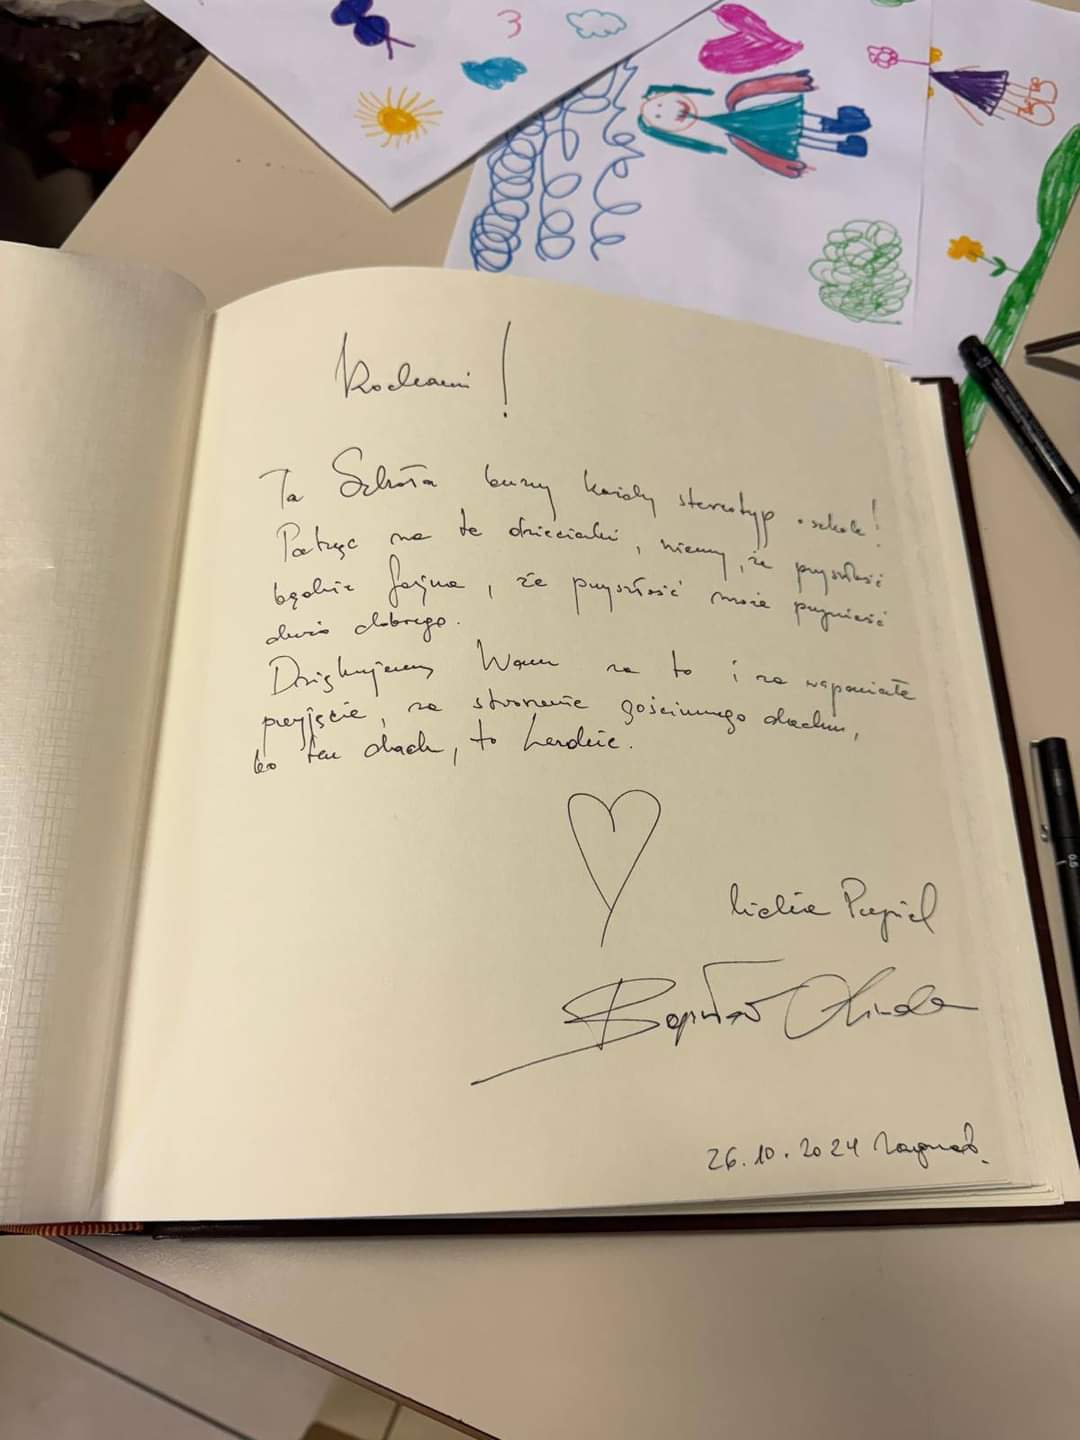 3
Kochani!
Ta Szkoła burzy każdy stereotyp o szkole!
Patrząc na te dzieciaki, wiemy, że przyszłość
będzie fajna, że przyszłość może przynieść
dużo dobrego.
Dziękujemy Wam za to i za wspaniałe
przyjęcie, za stworzenie gościnnego dachu,
bo ten dach, to ludzie.
Lidia Popiel
Bogusław Linda
26.10.2024
0.5